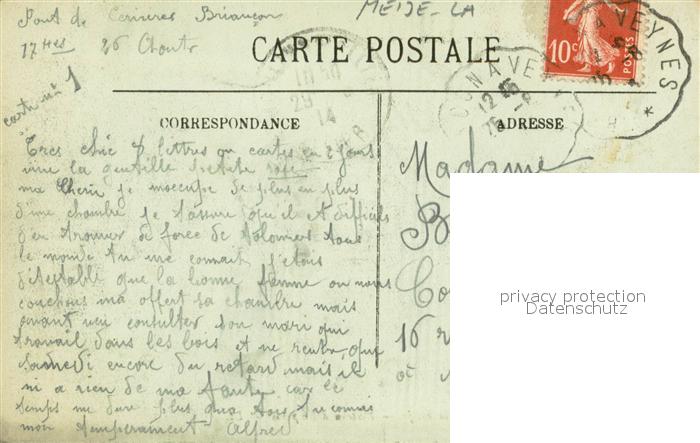 Pont de Cerveres Briançon MEIJE-LA
17 Hes 26 Août
carte no 1
CARTE POSTALE
10c POSTES
A VEYNES
A VEYNES
12 15
29
14
CORRESPONDANCE
ADRESSE
Tres chic 7 lettres ou cartes en 2 jours
une la gentille petite rose
ma Cherie je moccupe de plus en plus
d'une chambre je tassure qu'il est difficile
d'en trouver de force de tous
le monde tu me connait j'etais
d'etestable que la bonne femme ou nous
couchons ma offert sa chambre mais
avant veu consulter son mari qui
travail dans les bois et ne rentre que
Samedi encore du retard mais il
ni a rien de ma faute car le
temps me dure plus qua toi tu connais
mon temperament Alfred
Madame
B
Co
16 r
privacy protection
Datenschutz